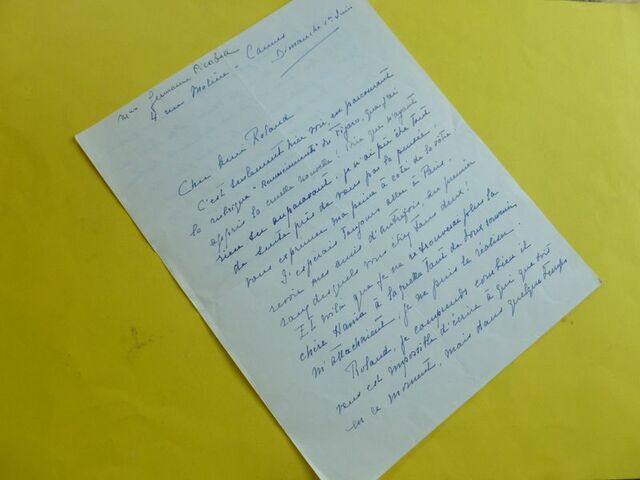 Mme Germaine Picabia
4 rue Molière - Cannes
Dimanche 1er Juin
Cher ami Roland
C'est seulement hier soir en parcourant
la rubrique "Remerciements" du Figaro, que j'ai
appris la cruelle nouvelle! Bien que n'ayant
rien su auparavant, je n'ai pu être tout
de suite près de vous par la pensée,
vous exprimer ma peine à côté de la vôtre.
J'espérais toujours aller à Paris,
revoir mes amis d'autrefois, au premier
rang desquels vous étiez tous deux!
Et voilà que je ne retrouverai plus la
chère Hania à laquelle tant de doux souvenirs
m'attachaient, je ne puis le réaliser.
Roland, je comprends combien il
vous est impossible d'écrire à qui que ce soit
en ce moment, mais dans quelque temps